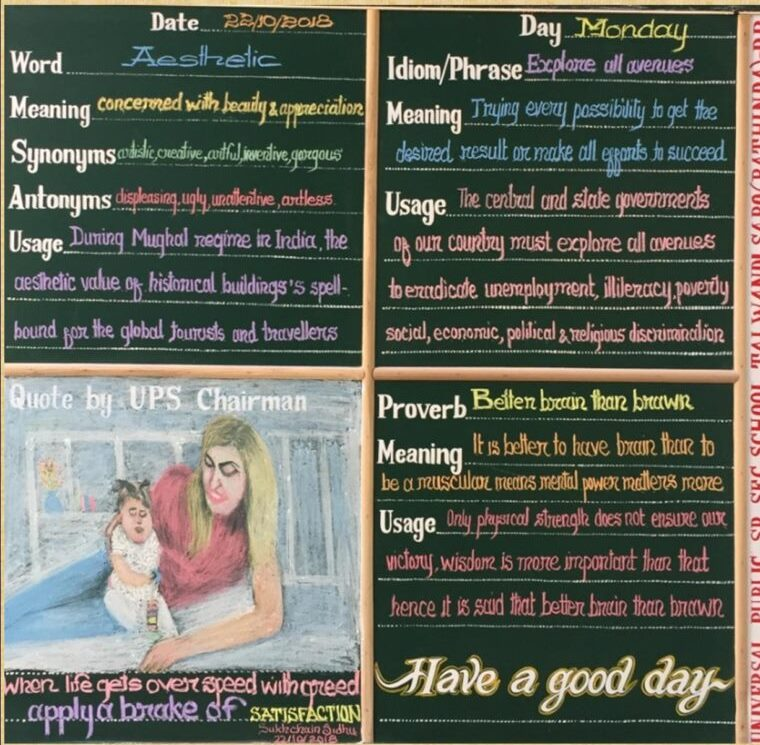 Date 22/10/2018
Word Aesthetic
Meaning concerned with beauty & appreciation
Synonyms artistic, creative, artful, inventive, gorgous
Antonyms displeasing, ugly, unattentive, artless
Usage During Mughal regime in India, the
aesthetic value of historical buildings's spell-
bound for the global tourists and travellers
Day Monday
Idiom/Phrase Explore all avenues
Meaning Trying every possibility to get the
desired result or make all efforts to succeed
Usage The central and state governments
of our country must explore all avenues
to eradicate unemployment, illiteracy, poverty
social, economic, political & religious discrimination
Quote by UPS Chairman
When life gets over speed with greed
apply a brake of SATISFACTION
Sukhchain Sidhu
22/10/2018
Proverb Better brain than brawn
Meaning It is better to have brain than to
be a muscular means mental power matters more
Usage Only physical strength does not ensure our
victory, wisdom is more important than that
hence it is said that better brain than brawn
Have a good day
UNIVERSAL PUBLIC SR. SEC. SCHOOL TALWANDI SABO (BATHINDA)